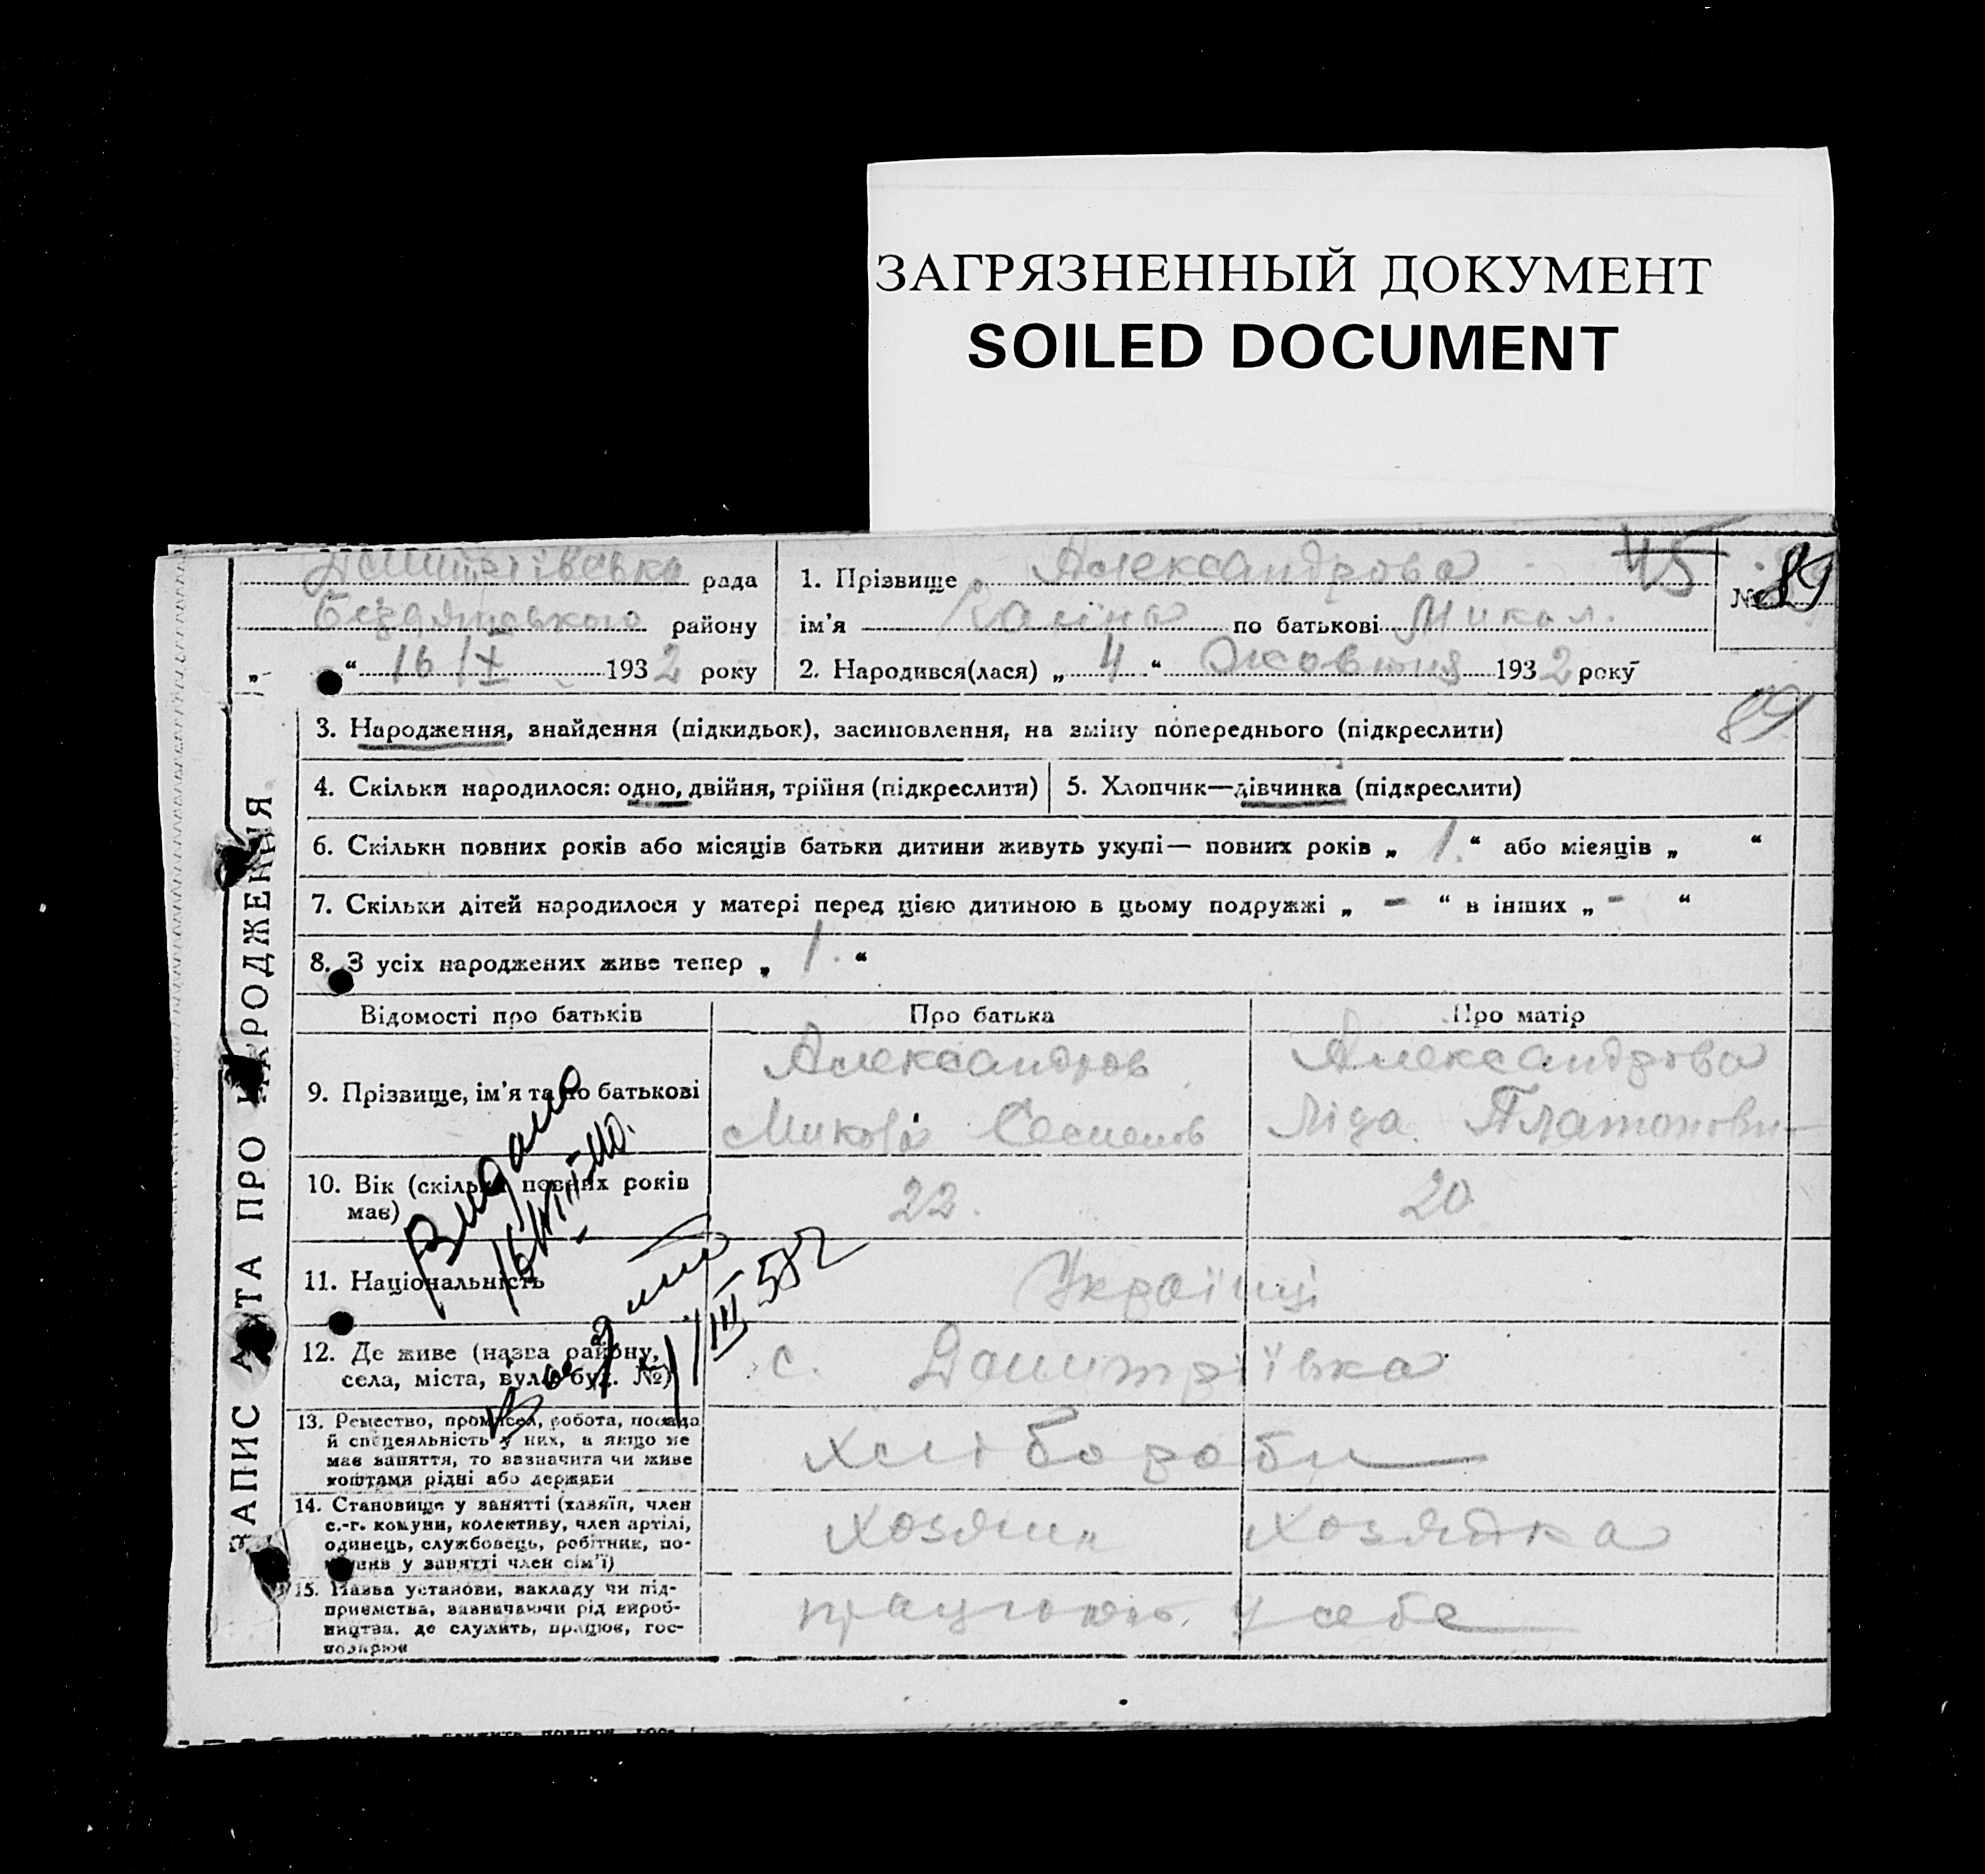 ЗАГРЯЗНЕННЫЙ ДОКУМЕНТ
SOILED DOCUMENT
Дмитріївська рада
району
„ “ 16/X 1932 року
1. Прізвище Александрова 45
№ 89
ім’я по батькові Микол.
2. Народився(лася) „ 4 “ Жовтня 1932 року
89
ЗАПИС АКТА ПРО НАРОДЖЕННЯ
3. Народження, знайдення (підкидьок), засиновлення, на зміну попереднього (підкреслити)
4. Скільки народилося: одно, двійня, трійня (підкреслити)
5. Хлопчик—дівчинка (підкреслити)
6. Скільки повних років або місяців батьки дитини живуть укупі— повних років „ 1. “ або місяців „ “
7. Скільки дітей народилося у матері перед цією дитиною в цьому подружжі „ - “ в інших „ - “
8. З усіх народжених живе тепер „ 1. “
Відомості про батьків
Про батька
Про матір
9. Прізвище, ім’я та по батькові
Александров
Микола Семенов
Александрова
Ліда Платоновн
10. Вік (скільки повних років
має)
22.
20
11. Національність
Українці
12. Де живе (назва району,
села, міста, вул. буд. №)
с. Дмитріївка
13. Ремество, промисел, робота, посада
й спецеяльність у них, а якщо не
має заняття, то зазначити чи живе
коштами рідні або держави
хлібороби
14. Становище у занятті (хазяїн, член
с.-г. комуни, колективу, член артілі,
одинець, службовець, робітник, по-
у занятті член сім’ї)
хозяин
хозяйка
15. Назва установи, закладу чи під-
приємства, зазначаючи рід вироб-
ництва, де служить, працює, гос-
подарює
працюють у себе
Видано